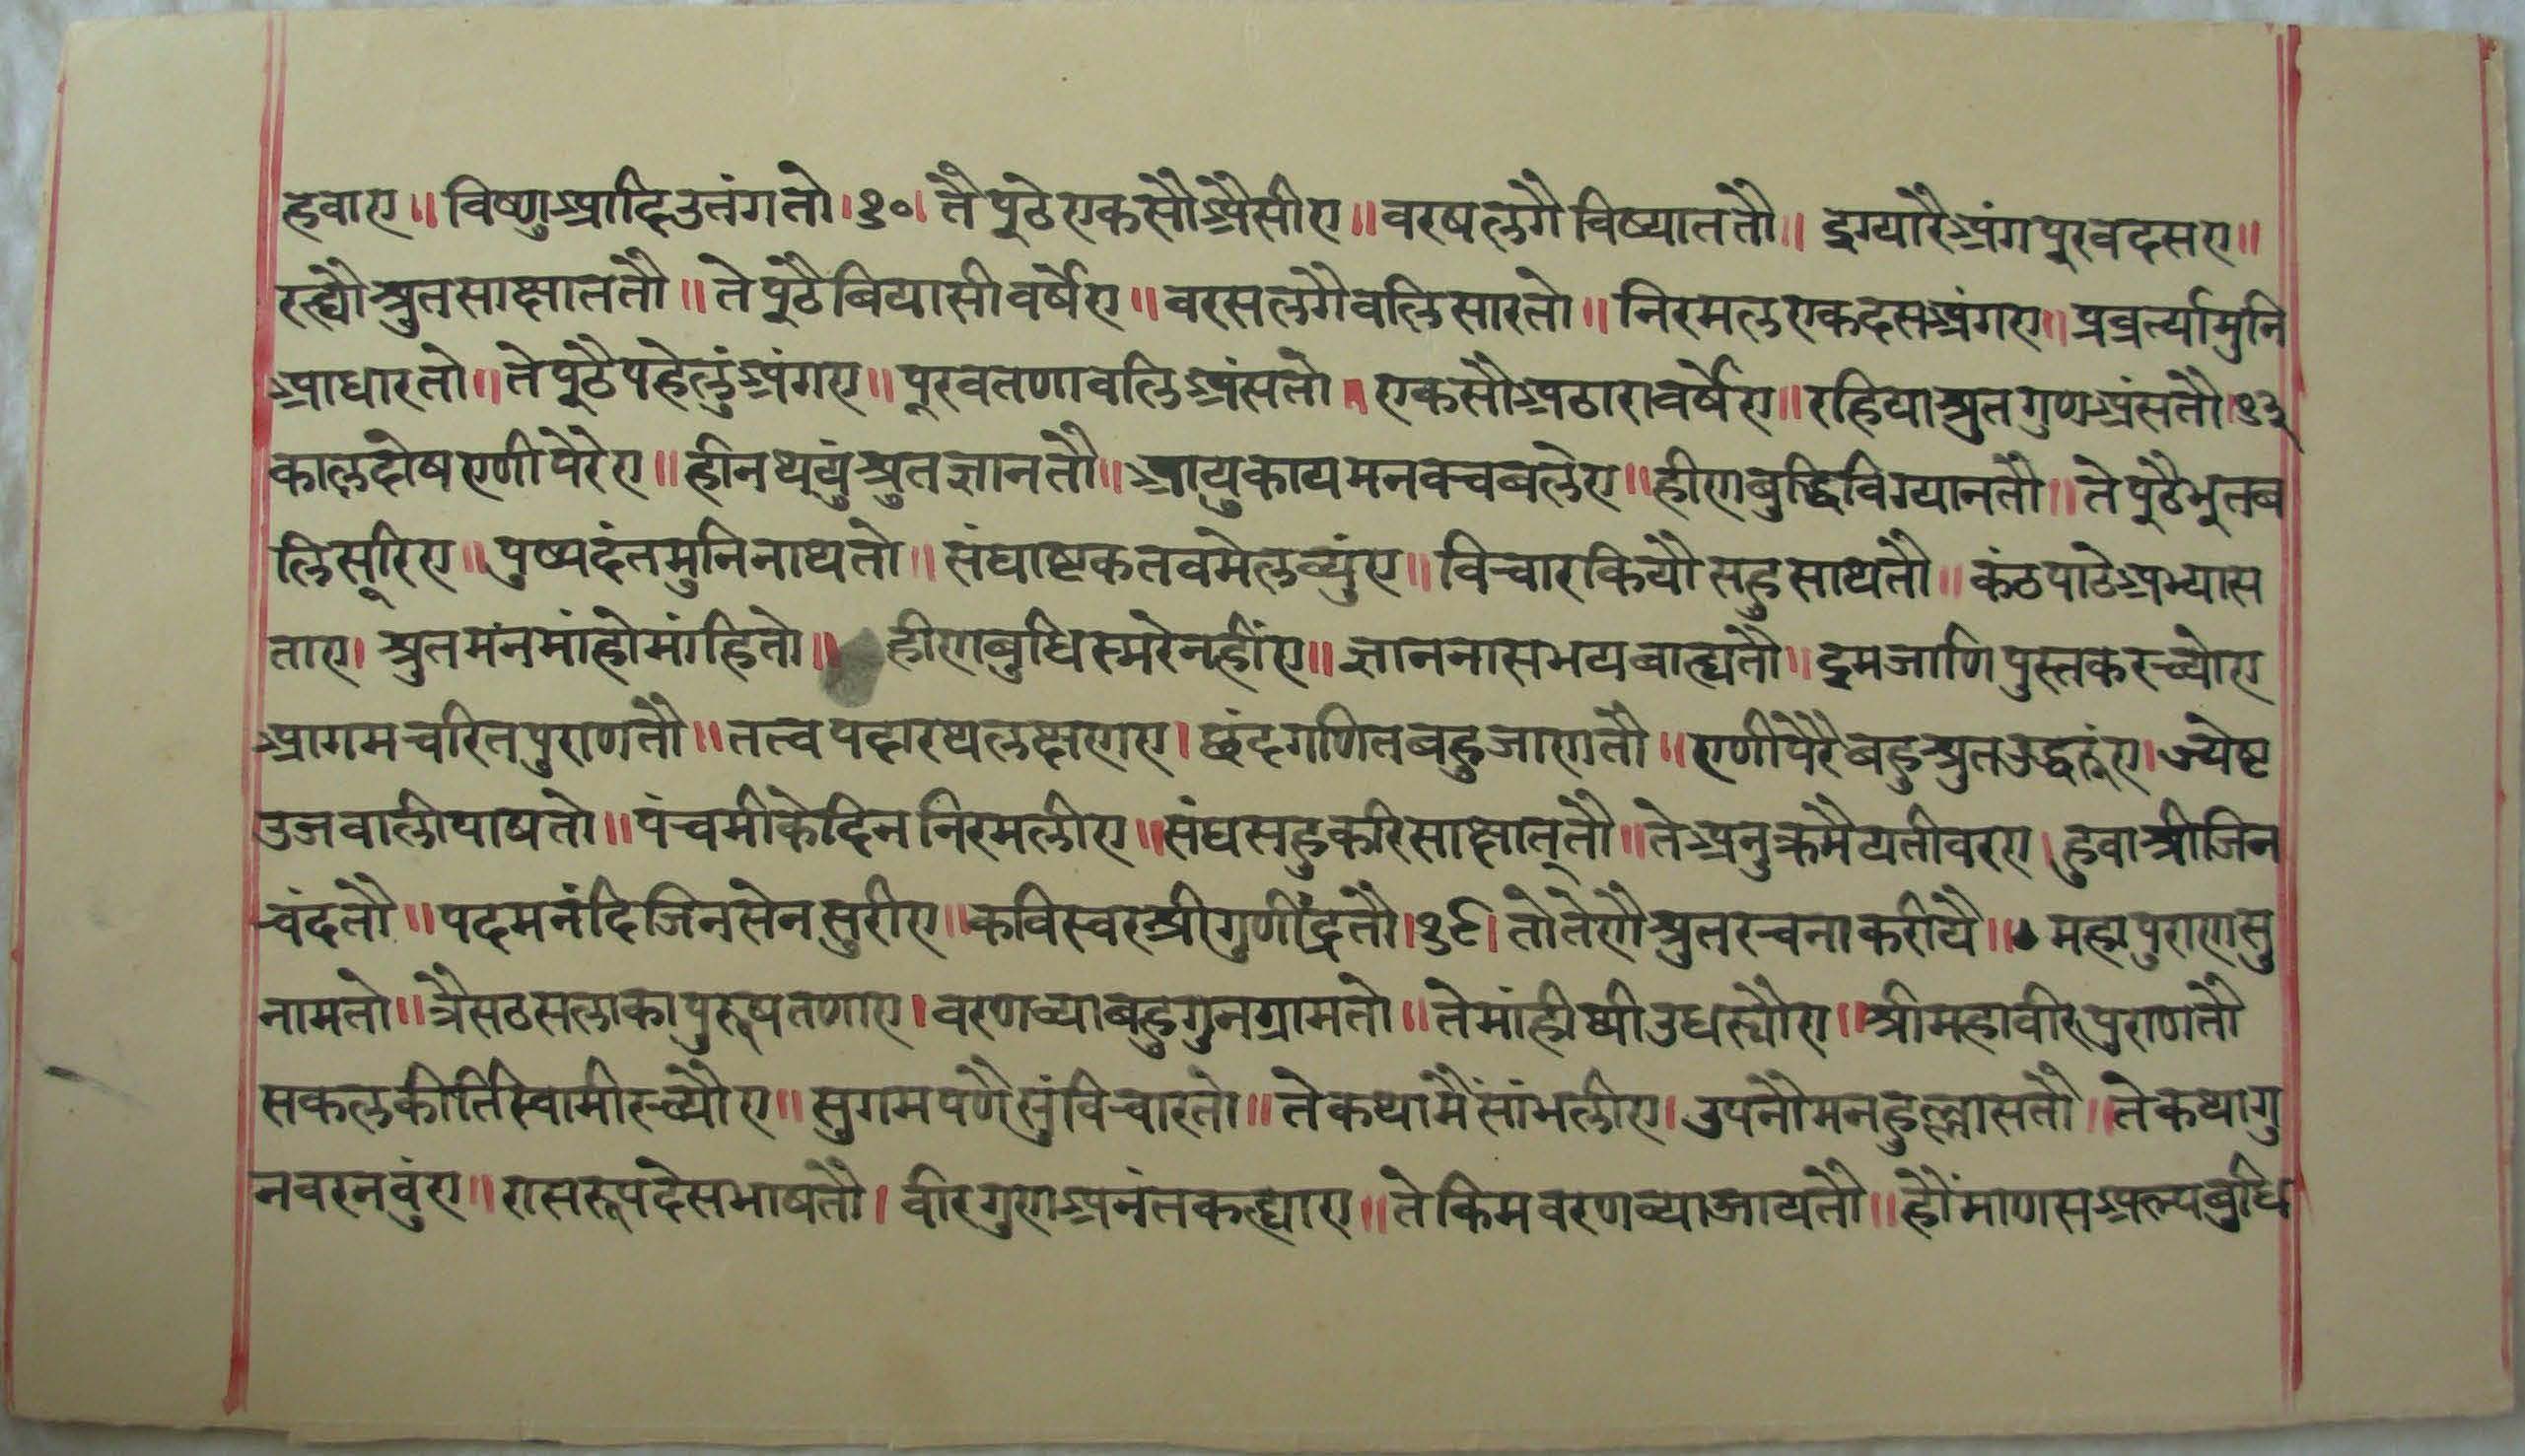 हवाए॥ विष्णु आदि उतंगतो।१०। तै पूठे एकसौ अैसीए॥ वरष लगै विष्याततौ॥ इग्यारै अंग पूरव दसए॥
रह्यौ श्रुत साक्षाततौ॥ ते पूठै बियासी वर्षेए॥ वरस लगै वलि सारतो॥ निरमल एकदस अंगए॥ प्रवर्त्या मुनि
आधारतो॥ ते पूठै पहेलुं अंगए॥ पूरवतणा वलि अंसतो॥ एकसौ अठारा वर्षेए॥ रहिया श्रुत गुण अंसतौ।१३
कालदोष एणी पेरेए॥ हीन थयुं श्रुतज्ञानतौ॥ आयु काय मन वच बलेए॥ हीण बुद्धि विग्यानतौ॥ ते पूठै भूतब
लि सूरिए॥ पुष्पदंत मुनिनाथतो॥ संघाष्टक तव मेलव्युंए॥ विचार कियौ सहु साथतौ॥ कंठपाठे अभ्यास
ताए। श्रुत मंन मांहो मांहितो॥ हीण बुधि स्मरे नहींए॥ ज्ञान नास भय बाह्यतौ॥ इम जाणि पुस्तक रच्योए
आगम चरित पुराणतौ॥ तत्व पदारथ लक्षणए। छंद गणित बहु जाणतौ॥ एणी पेरै बहुश्रुत उद्धरूंए। ज्येष्ट
उजवाली पाषतो॥ पंचमी के दिन निरमलीए॥ संघ सहु करि साक्षात्तौ॥ ते अनुक्रमै यतीवरए। हुवा श्रीजिन
चंदतौ॥ पदमनंदि जिनसेन सुरीए॥ कविस्वर श्री गुणींद्रतौ।१९। तो तेणै श्रुत रचना करीयै॥ महापुराण सु
नामतो॥ त्रैसठ सलाका पुरूष तणाए। वरणव्या बहु गुन ग्रामतो॥ ते मांही थी उधर्‍यौए॥ श्री महावीर पुराणतौ
सकलकीर्ति स्वामी रच्यौए॥ सुगम पणै सुं विचारतो॥ ते कथा मैं सांभलीए। उपनौ मन हुल्लासतौ॥ ते कथा गु
न वरनवुंए॥ रास रूप देस भाषतौ। वीर गुण अनंत कह्याए॥ ते किम वरणव्या जायतौ॥ हौं माणस अल्प बुधि